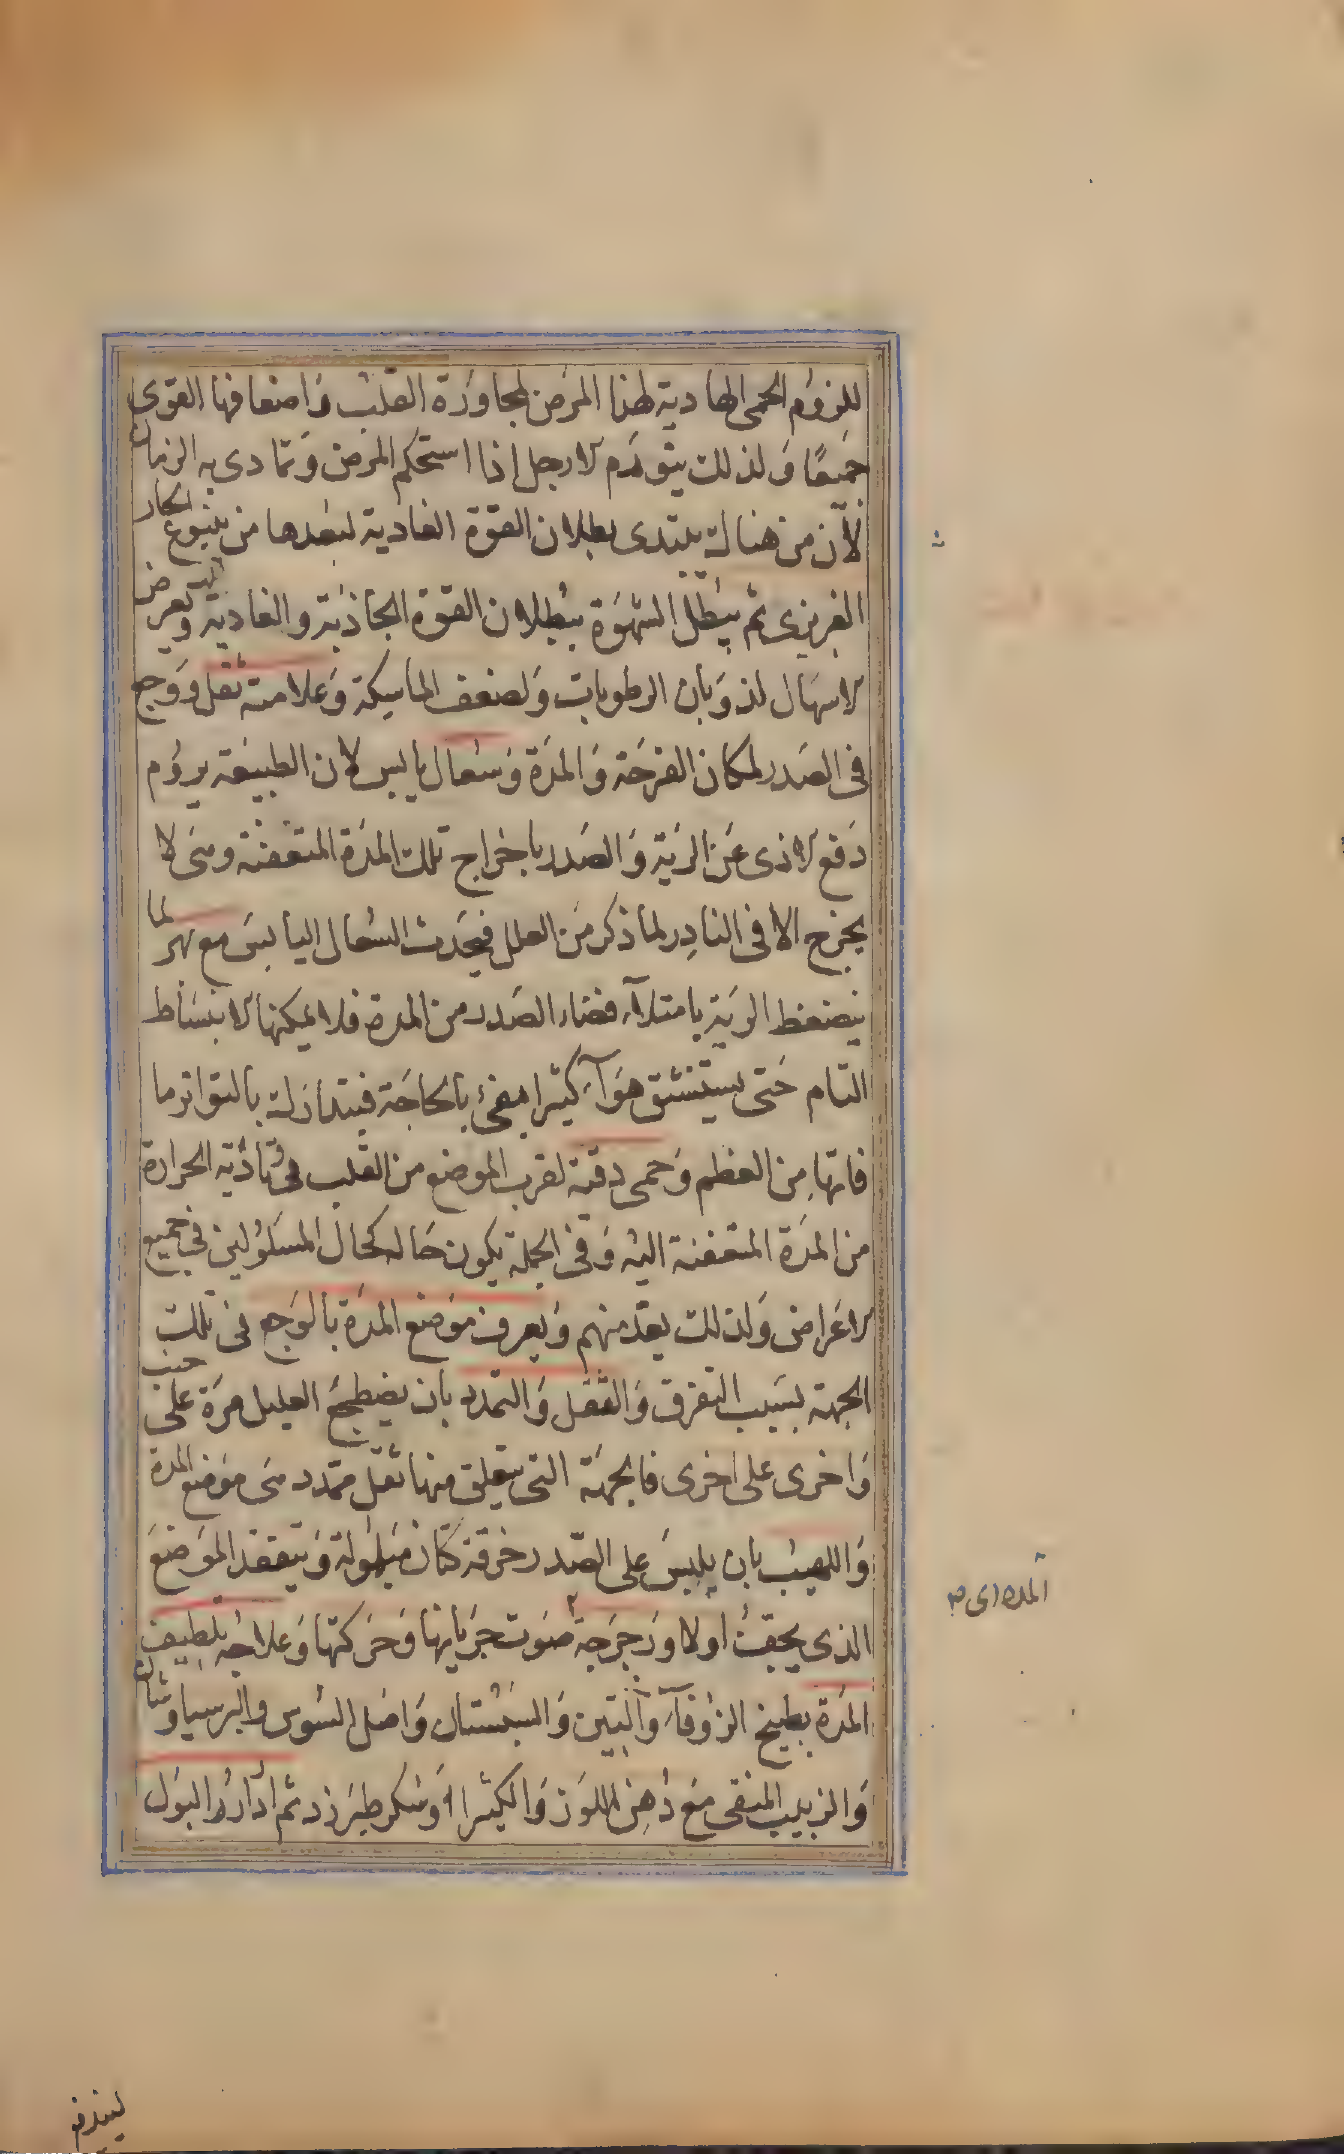 للزوم الحمى الهادية لهذا المرض لمجاورة القلب واضعافها القوى
جميعا ولذلك يتورم الارجل اذا استحكم المرض وتمادى به الزمان
لان من هناك يبتدى بطلان القوة الغادية لبعدها من ينبوع الحار
الغريزى ثم يبطل الشهوة ببطلان القوة الجاذبة والغادية ويعرض
الاسهال لذوبان الرطوبات ولضعف الماسكة وعلامته ثقل ووجع
فى الصدر لمكان القرحة والمدة وسعال يابس لان الطبيعة يروم
دفع الاذى عن الرية والصدر باخراج تلك المدة المتعفنة وهى لا
يخرج الا فى النادر لما ذكر من العلل فيحدث السعال اليابس مع بهر لما
ينضغط الرية بامتلآء فضاء الصدر من المدة فلا يمكنها الانبساط
التام حتى يستنشق هوآء كثيرا يفئ بالحاجة فيتدارك بالتواتر ما
فاتها من العظم وحمى دقية لقرب الموضع من القلب وتأدية الحرارة
من المدة المتعفنة اليه وفى الجملة يكون حاله كحال المسلولين فى جميع
الاعراض ولذلك يعد منهم ويعرف موضع المدة بالوجع فى تلك
الجهة بسبب التفرق والثقل والتمدد بان يضطجع العليل مرة على جنب
واخرى على اخرى فالجهة التى يتعلق منها ثقل ممدد هى موضع المدة
واللهيب بان يلبس على الصدر خرقة كتان مبلولة ويتفقد الموضع
الذى يجف اولا ورجرجة صوت جريانها وحركتها وعلاجه تلطيف
المدة بطبيخ الزوفآء والتين والسبستان واصل السوس والبرسياوشان
والزبيب المنقى مع دهن اللوز والكثيرا وسكر طبرزد ثم ادرار البول
المده اى